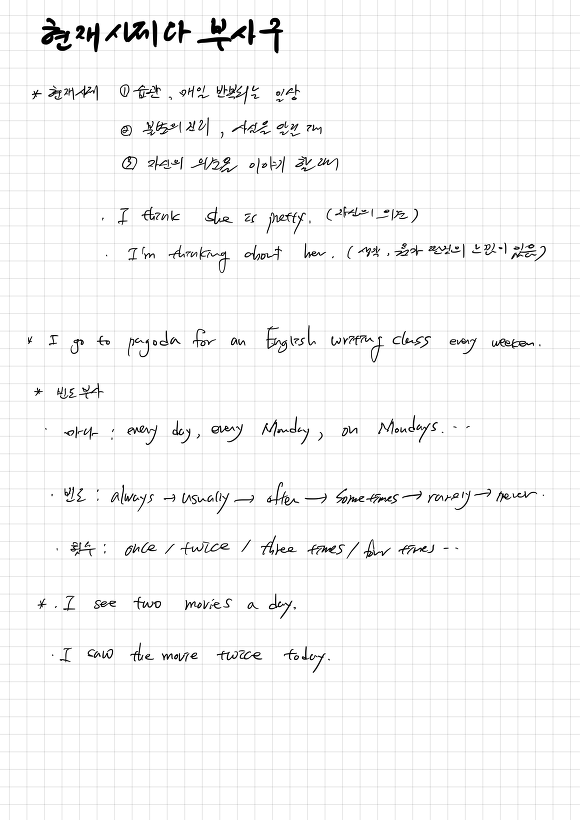 현재시제와 부사구
* 현재시제 ① 습관, 매일 반복되는 일상
② 불변의 진리, 사실을 말할 때
③ 자신의 의견을 이야기 할 때
· I think she is pretty. (자신의 의견)
· I'm thinking about her. (생각,
* I go to pagoda for an English writing class every weekend.
* 빈도부사
· 마다 : every day, every Monday, on Mondays...
· 빈도 : always → usually → often → sometimes → rarely → never.
· 횟수 : once / twice / three times / four times..
* · I see two movies a day.
· I saw the movie twice today.